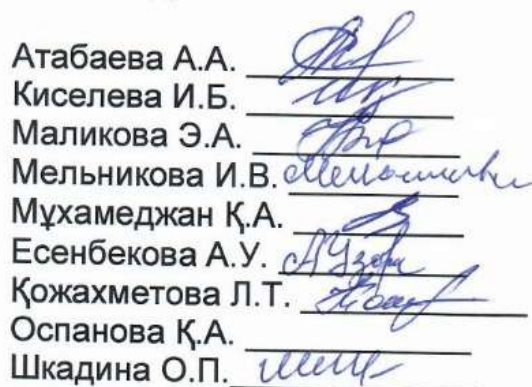 Атабаева А.А.
Киселева И.Б.
Маликова Э.А.
Мельникова И.В.
Мұхамеджан Қ.А.
Есенбекова А.У.
Қожахметова Л.Т.
Оспанова Қ.А.
Шкадина О.П.